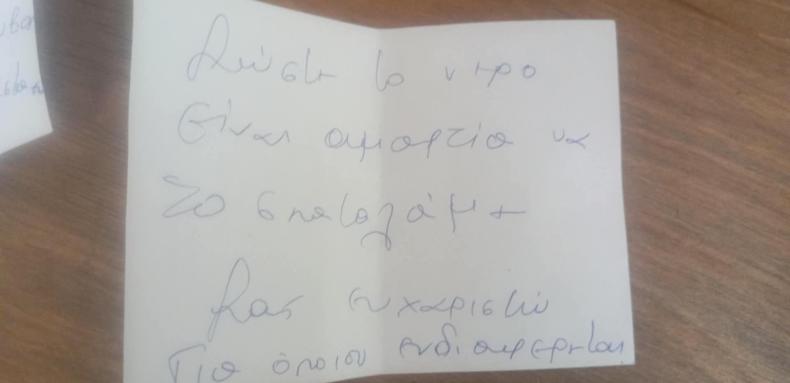 κλύστε το νερο
είναι αμαρτία να
το σπαταλάμε
σας ευχαριστώ
Για όποιον ενδιαφερεται